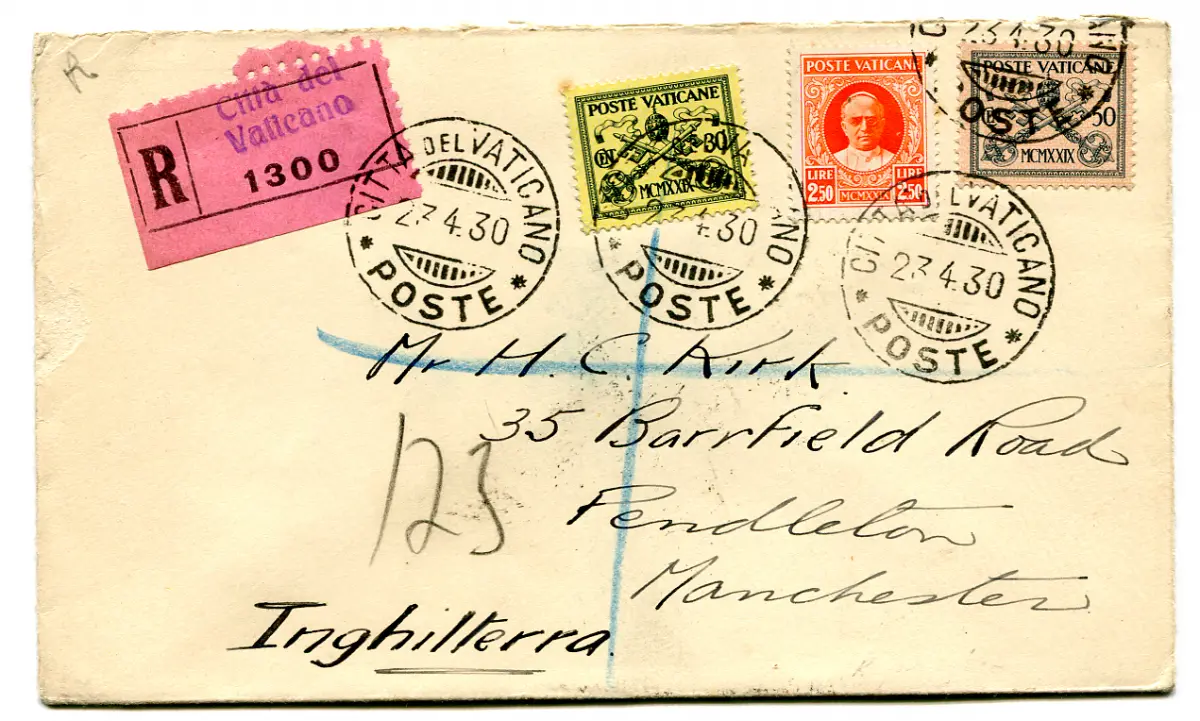 R
Città del
Vaticano
R
1300
POSTE VATICANE
CEN. 80
MCMXXIX
POSTE VATICANE
LIRE 2.50
LIRE 2.50
MCMXXIX
POSTE VATICANE
CEN. 50
MCMXXIX
23.4.30
POSTE
CITTÀ DEL VATICANO
23.4.30
POSTE
23.4.30
POSTE
CITTÀ DEL VATICANO
23.4.30
POSTE
Mr H. C. Kirk
35 Barrfield Road
Pendleton
Manchester
123
Inghilterra.